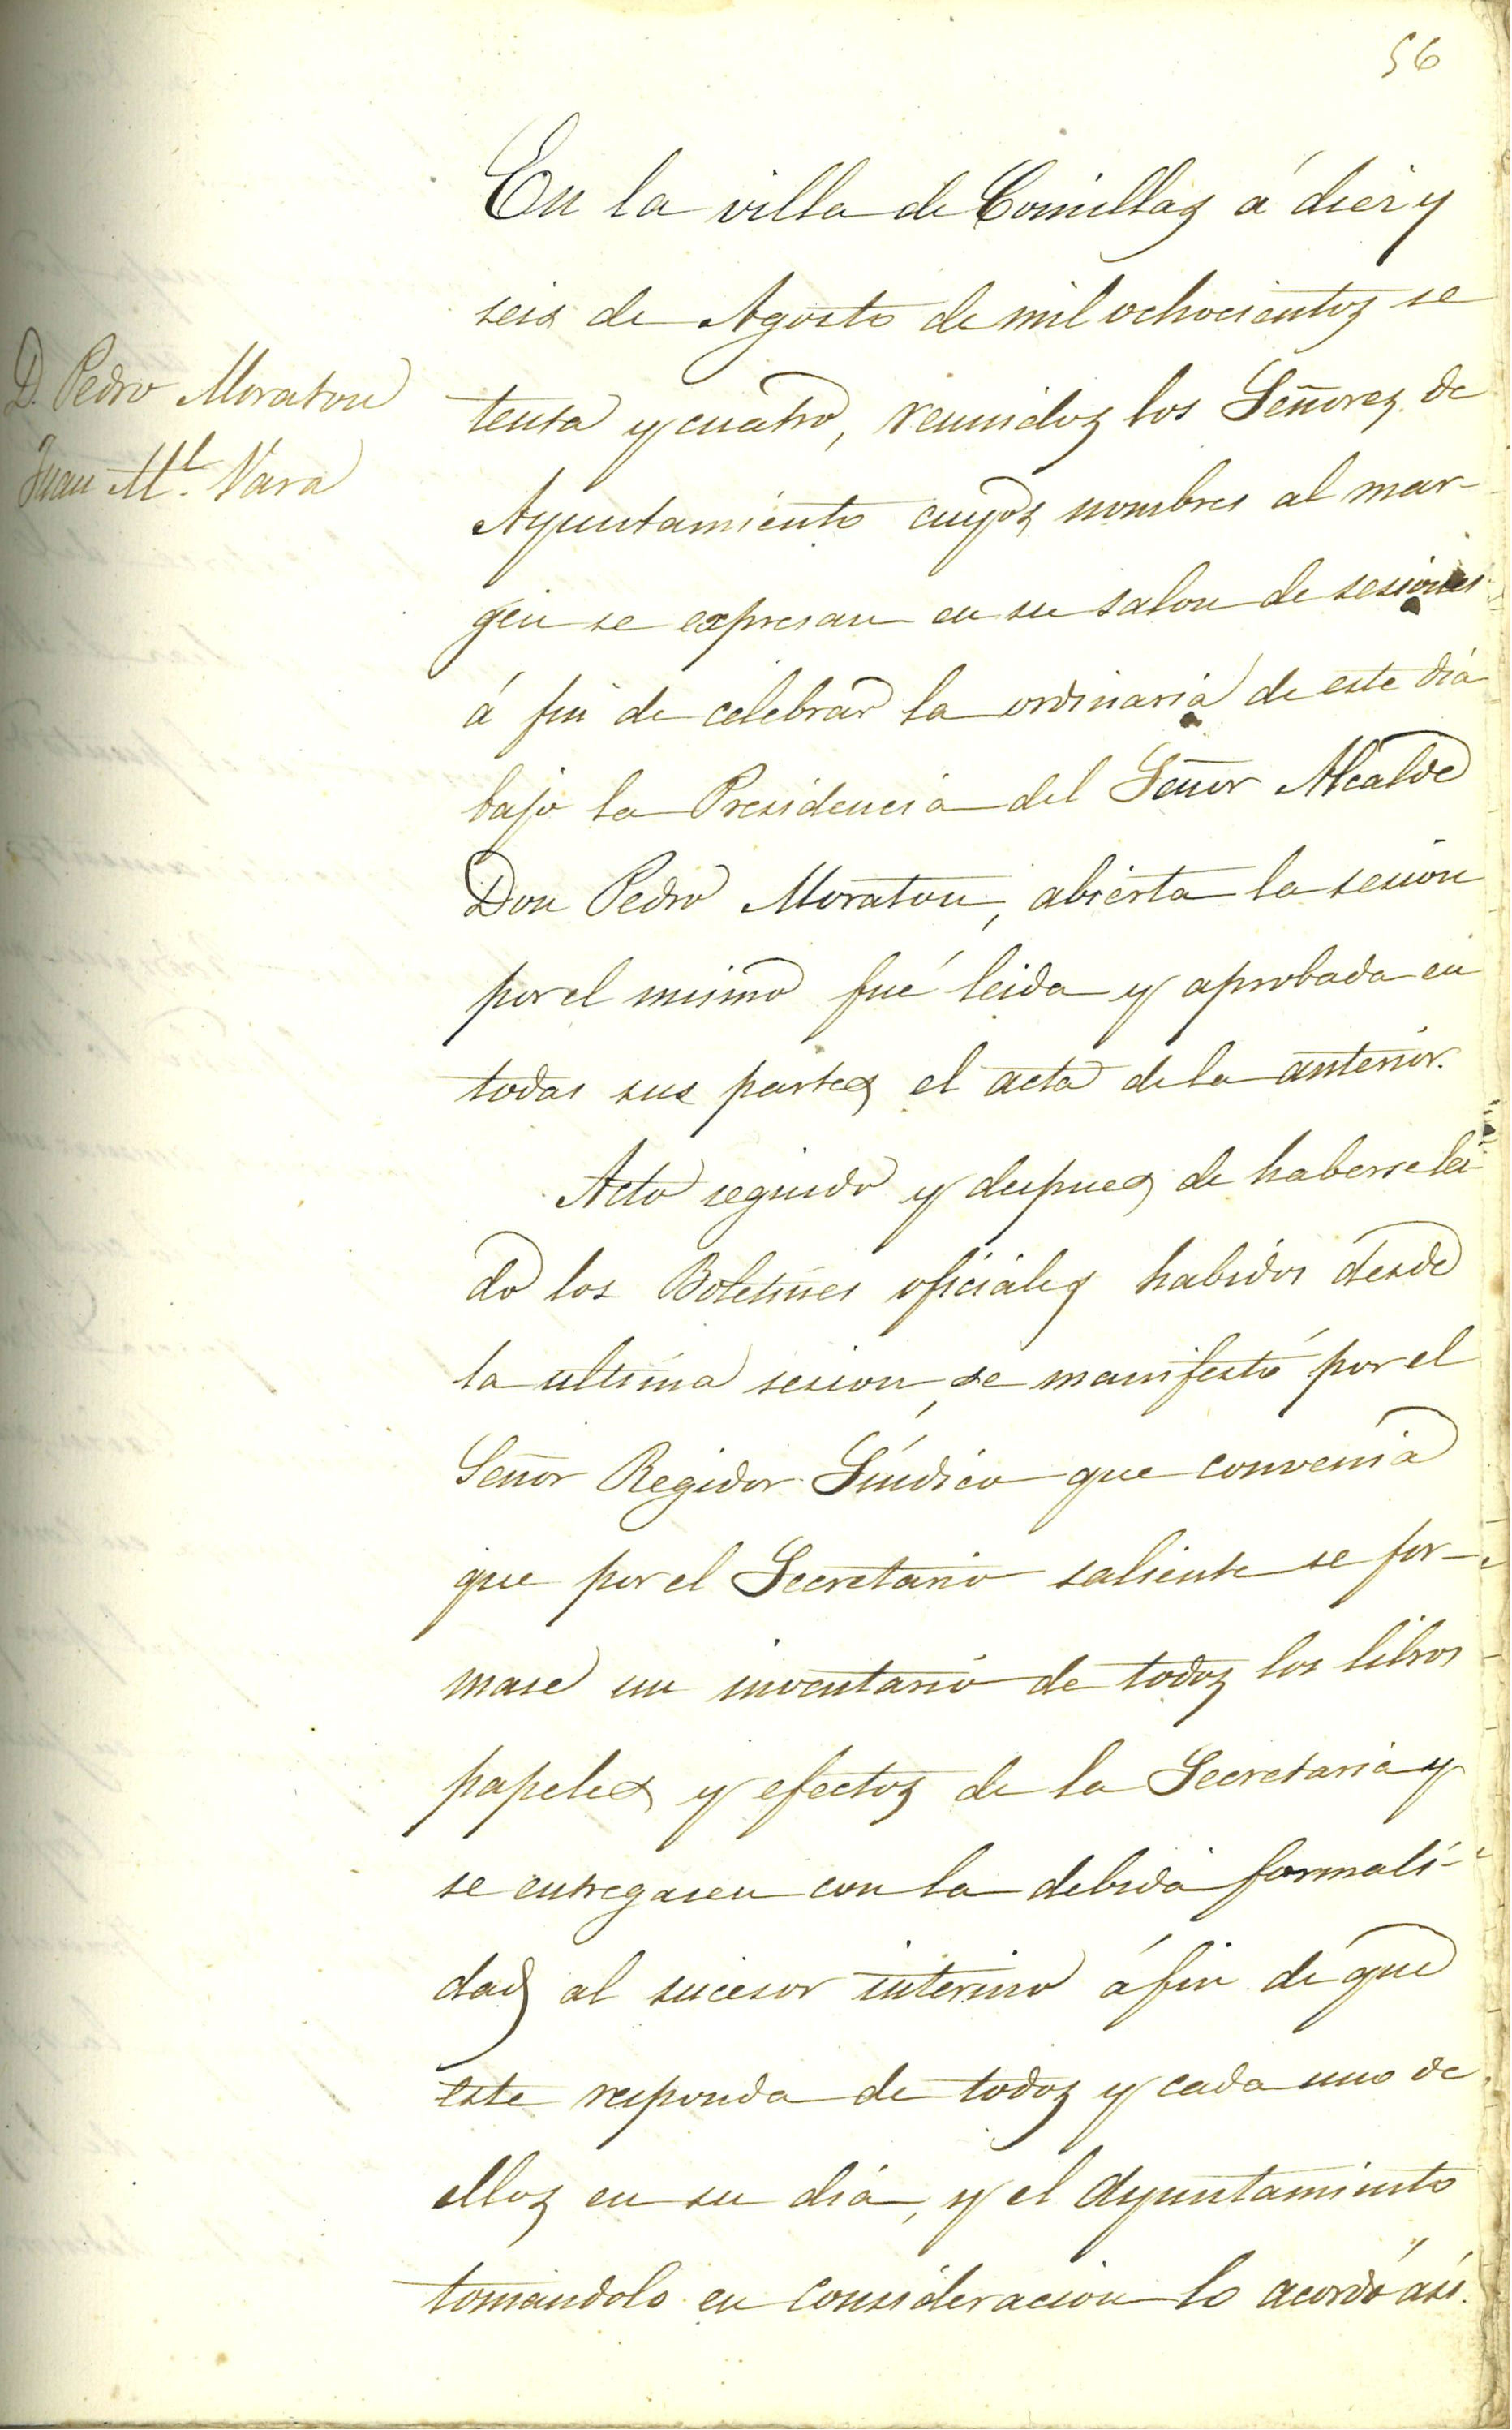 56
D. Pedro Moraton
Juan M.l Vara
En la villa de Comillas á diez y
seis de Agosto de mil ochocientos se
tenta y cuatro, reunidos los Señores de
Ayuntamiento cuyos nombres al mar-
gen se expresan en su salon de sesiones
á fin de celebrar la ordinaria de este dia
bajo la Presidencia del Señor Alcalde
Don Pedro Moraton, abierta la sesion
por el mismo fué leida y aprobada en
todas sus partes el acta de la anterior.
Acto seguido y despues de haberse lei
do los Boletines oficiales habidos desde
la ultima sesion, se manifestó por el
Señor Regidor Síndico que convenia
que por el Secretario saliente se for-
mase un inventario de todos los libros
papeles y efectos de la Secretaria y
se entregasen con la debida formali-
dad al sucesor interino á fin de que
este responda de todos y cada uno de
ellos en su dia, y el Ayuntamiento
tomandolo en consideracion lo acordó así.